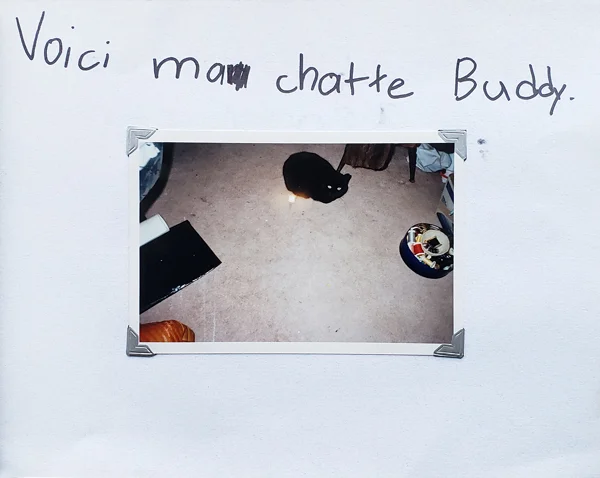 Voici ma chatte Buddy.